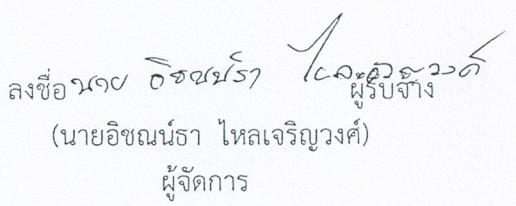 ลงชื่อ นาย อิชณน์ธา ไหลเจริญวงศ์ ผู้รับจ้าง
(นายอิชณน์ธา ไหลเจริญวงศ์)
ผู้จัดการ